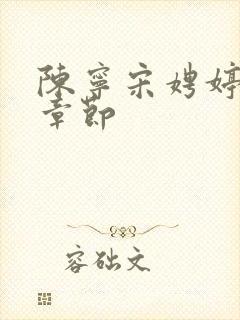 陳寧宋娉婷
章節
容础文